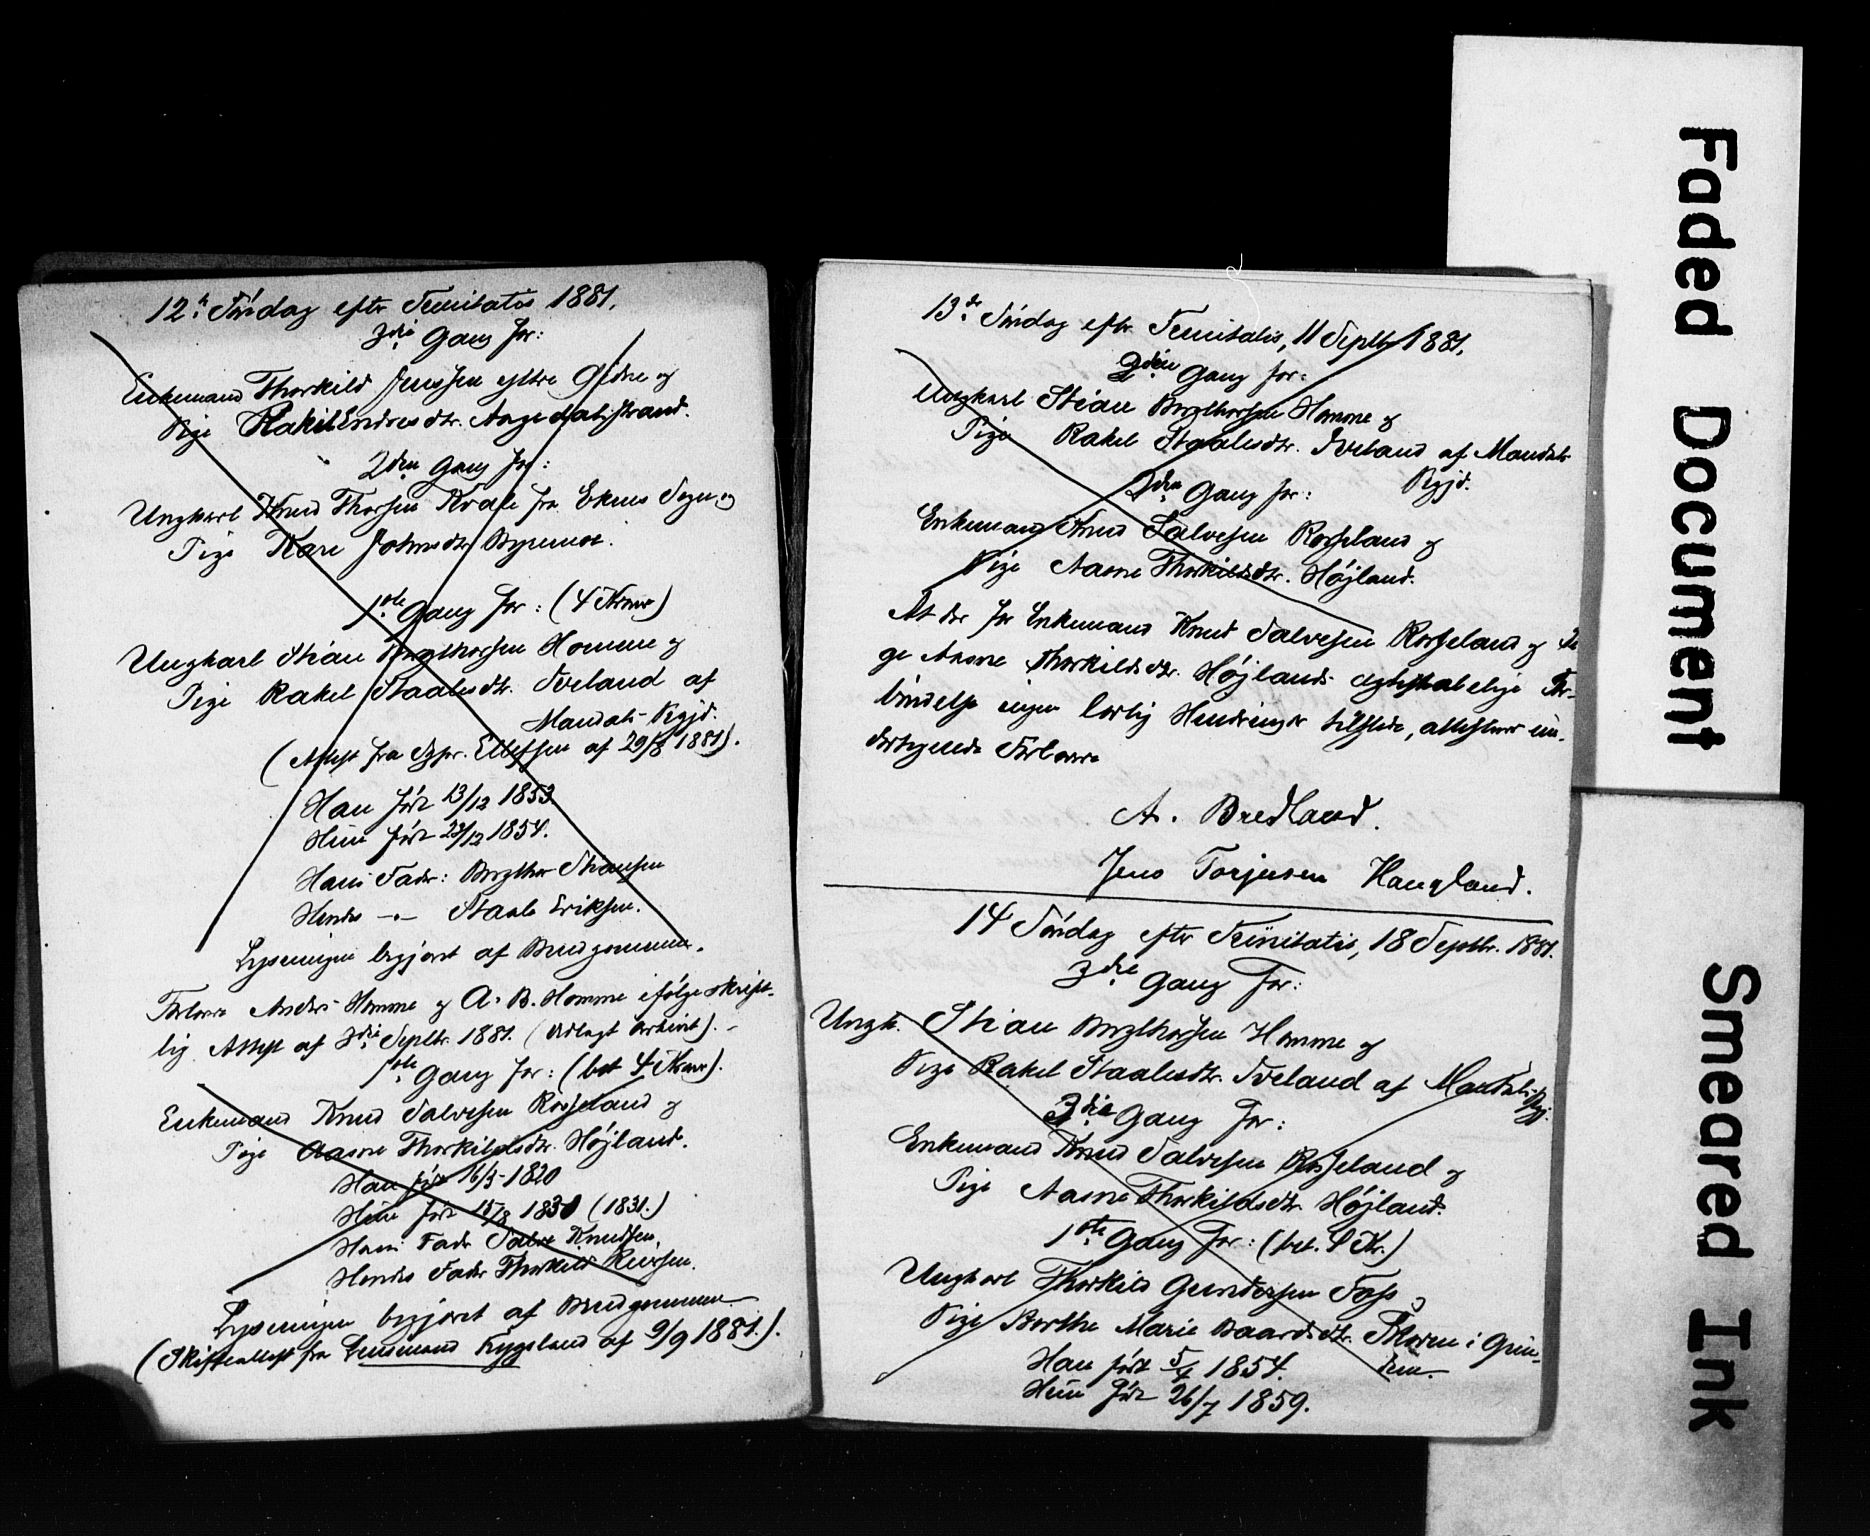 12te Søndag efter Trinitatis 1881.
3die Gang for:
Enkemand Thorkild Jenssen yttre Øidne og
Pige Rakel Endresdtr. Aagedalstrand.
2den Gang for:
Ungkarl Knud Thorsen Kvale fra Ekens Sogn og
Pige Kare Johnsdtr. Byremoe.
1ste Gang for: (4 Kroner)
Ungkarl Stian Bergthorsen Homme og
Pige Rakel Staalesdtr. Tveland af
Mandals Pgjd.
(Attest fra Sgpr. Ellefsen af 29/8 1881).
Han født 13/12 1853
Hun født 22/12 1854.
Hans Fader: Bergthor Stiansen
Hendes -"- Staale Eriksen.
Lysningen begjæret af Brudgommen.
Forlovere Anders Homme og A. B. Homme ifølge skrift-
lig Attest af 3die Septbr. 1881. (Udlagt Arkivet). -
1ste Gang for: (bet 4 Kroner).
Enkemand Knud Salvesen Rosseland og
Pige Aasne Thorkildsdtr. Højland.
Han født 16/3 1820
Hun født 15/8 1830 (1831.)
Hans Fader Salve Knudsen,
Hendes Fader Thorkild Reiersen.
Lysningen begjæret af Brudgommen
(Skifteattest fra Lensmand Kygsland af 9/9 1881.).
13de Søndag efter Trinitatis, 11 Septbr 1881.
2den Gang for:
Ungkarl Stian Bergthorsen Homme og
Pige Rakel Staalesdtr. Tveland af Mandals
Pgjd.
2den Gang for:
Enkemand Knud Salvesen Rosseland og
Pige Aasne Thorkildsdtr. Højland.
At der for Enkemand Knud Salvesen Rosseland og Pi
ge Aasne Thorkildsdtr. Højlands ægteskabelige For-
bindelse ingen lovlig Hindringer tilstede, attesterer un-
dertegnede Forlovere
A. Bredland.
Jens Torjusen Haugland.
14 Søndag efter Trinitatis, 18 Septbr. 1881.
3die Gang for:
Ungk. Stian Bergthorsen Homme og
Pige Rakel Staalesdtr. Tveland af Mandals Pgj.
3die Gang for:
Enkemand Knud Salvesen Rosseland og
Pige Aasne Thorkildsdtr. Højland.
1ste Gang for: (bet. 4 Kr.)
Ungkarl Thorkild Gundersen Foss og
Pige Berthe Marie Baardsdtr. Skoven i Grin-
dem.
Han født 5/4 1854.
Hun født 26/7 1859.
Faded Document
Smeared Ink